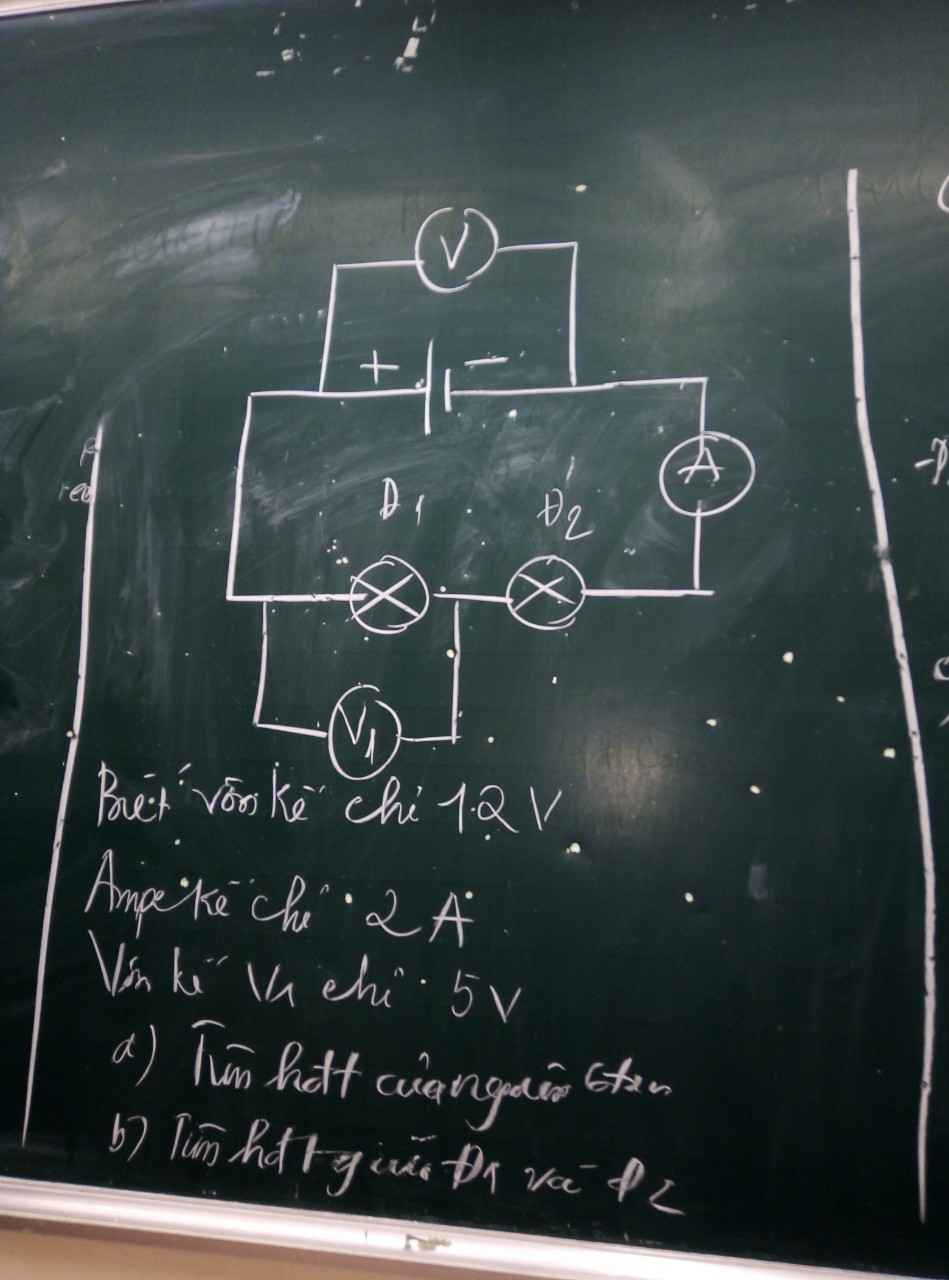 V
+ −
A
Đ1 Đ2
V1
Biết vôn kế chỉ 12 V
Ampe kế chỉ 2 A
Vôn kế V1 chỉ 5V
a) Tìm hđt của nguồn
b) Tìm hđt giữa Đ1 và Đ2